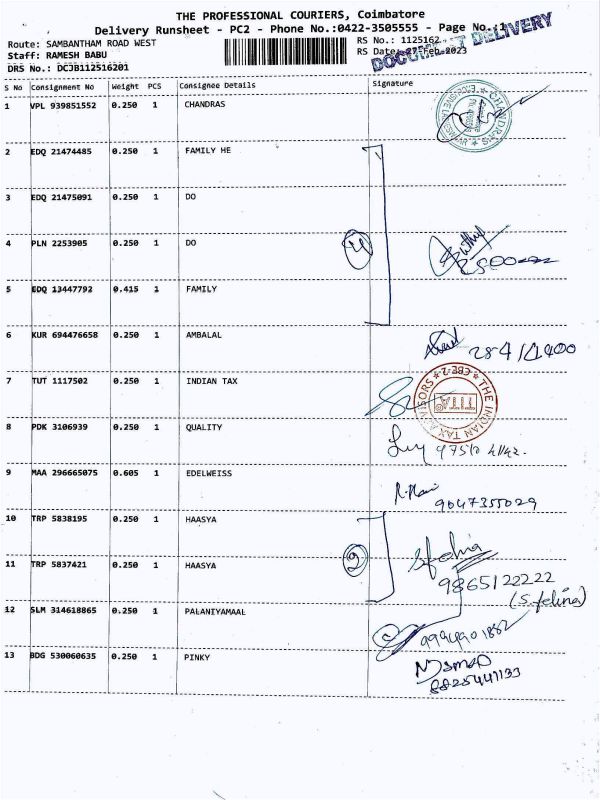 THE PROFESSIONAL COURIERS, Coimbatore
Delivery Runsheet - PC2 - Phone No.:0422-3505555 - Page No.:1
DOCUMENT DELIVERY
Route: SAMBANTHAM ROAD WEST RS No.: 1125162
Staff: RAMESH BABU RS Date: 27-Feb-2023
DRS No.: DCJB112516201
S No Consignment No Weight PCS Consignee Details Signature
1 VPL 939851552 0.250 1 CHANDRAS
2 EDQ 21474485 0.250 1 FAMILY HE
3 EDQ 21475091 0.250 1 DO
4 PLN 2253905 0.250 1 DO
4
5 EDQ 13447792 0.415 1 FAMILY
6 KUR 694476658 0.250 1 AMBALAL
7 TUT 1117502 0.250 1 INDIAN TAX
THE INDIAN TAX ADVISORS * CBE-2 *
TITA
8 PDK 3106939 0.250 1 QUALITY
9 MAA 296665075 0.605 1 EDELWEISS
9047355029
10 TRP 5838195 0.250 1 HAASYA
2
11 TRP 5837421 0.250 1 HAASYA
9865122222
(S.felina)
12 SLM 314618865 0.250 1 PALANIYAMAAL
13 BDG 530060635 0.250 1 PINKY
8825441133